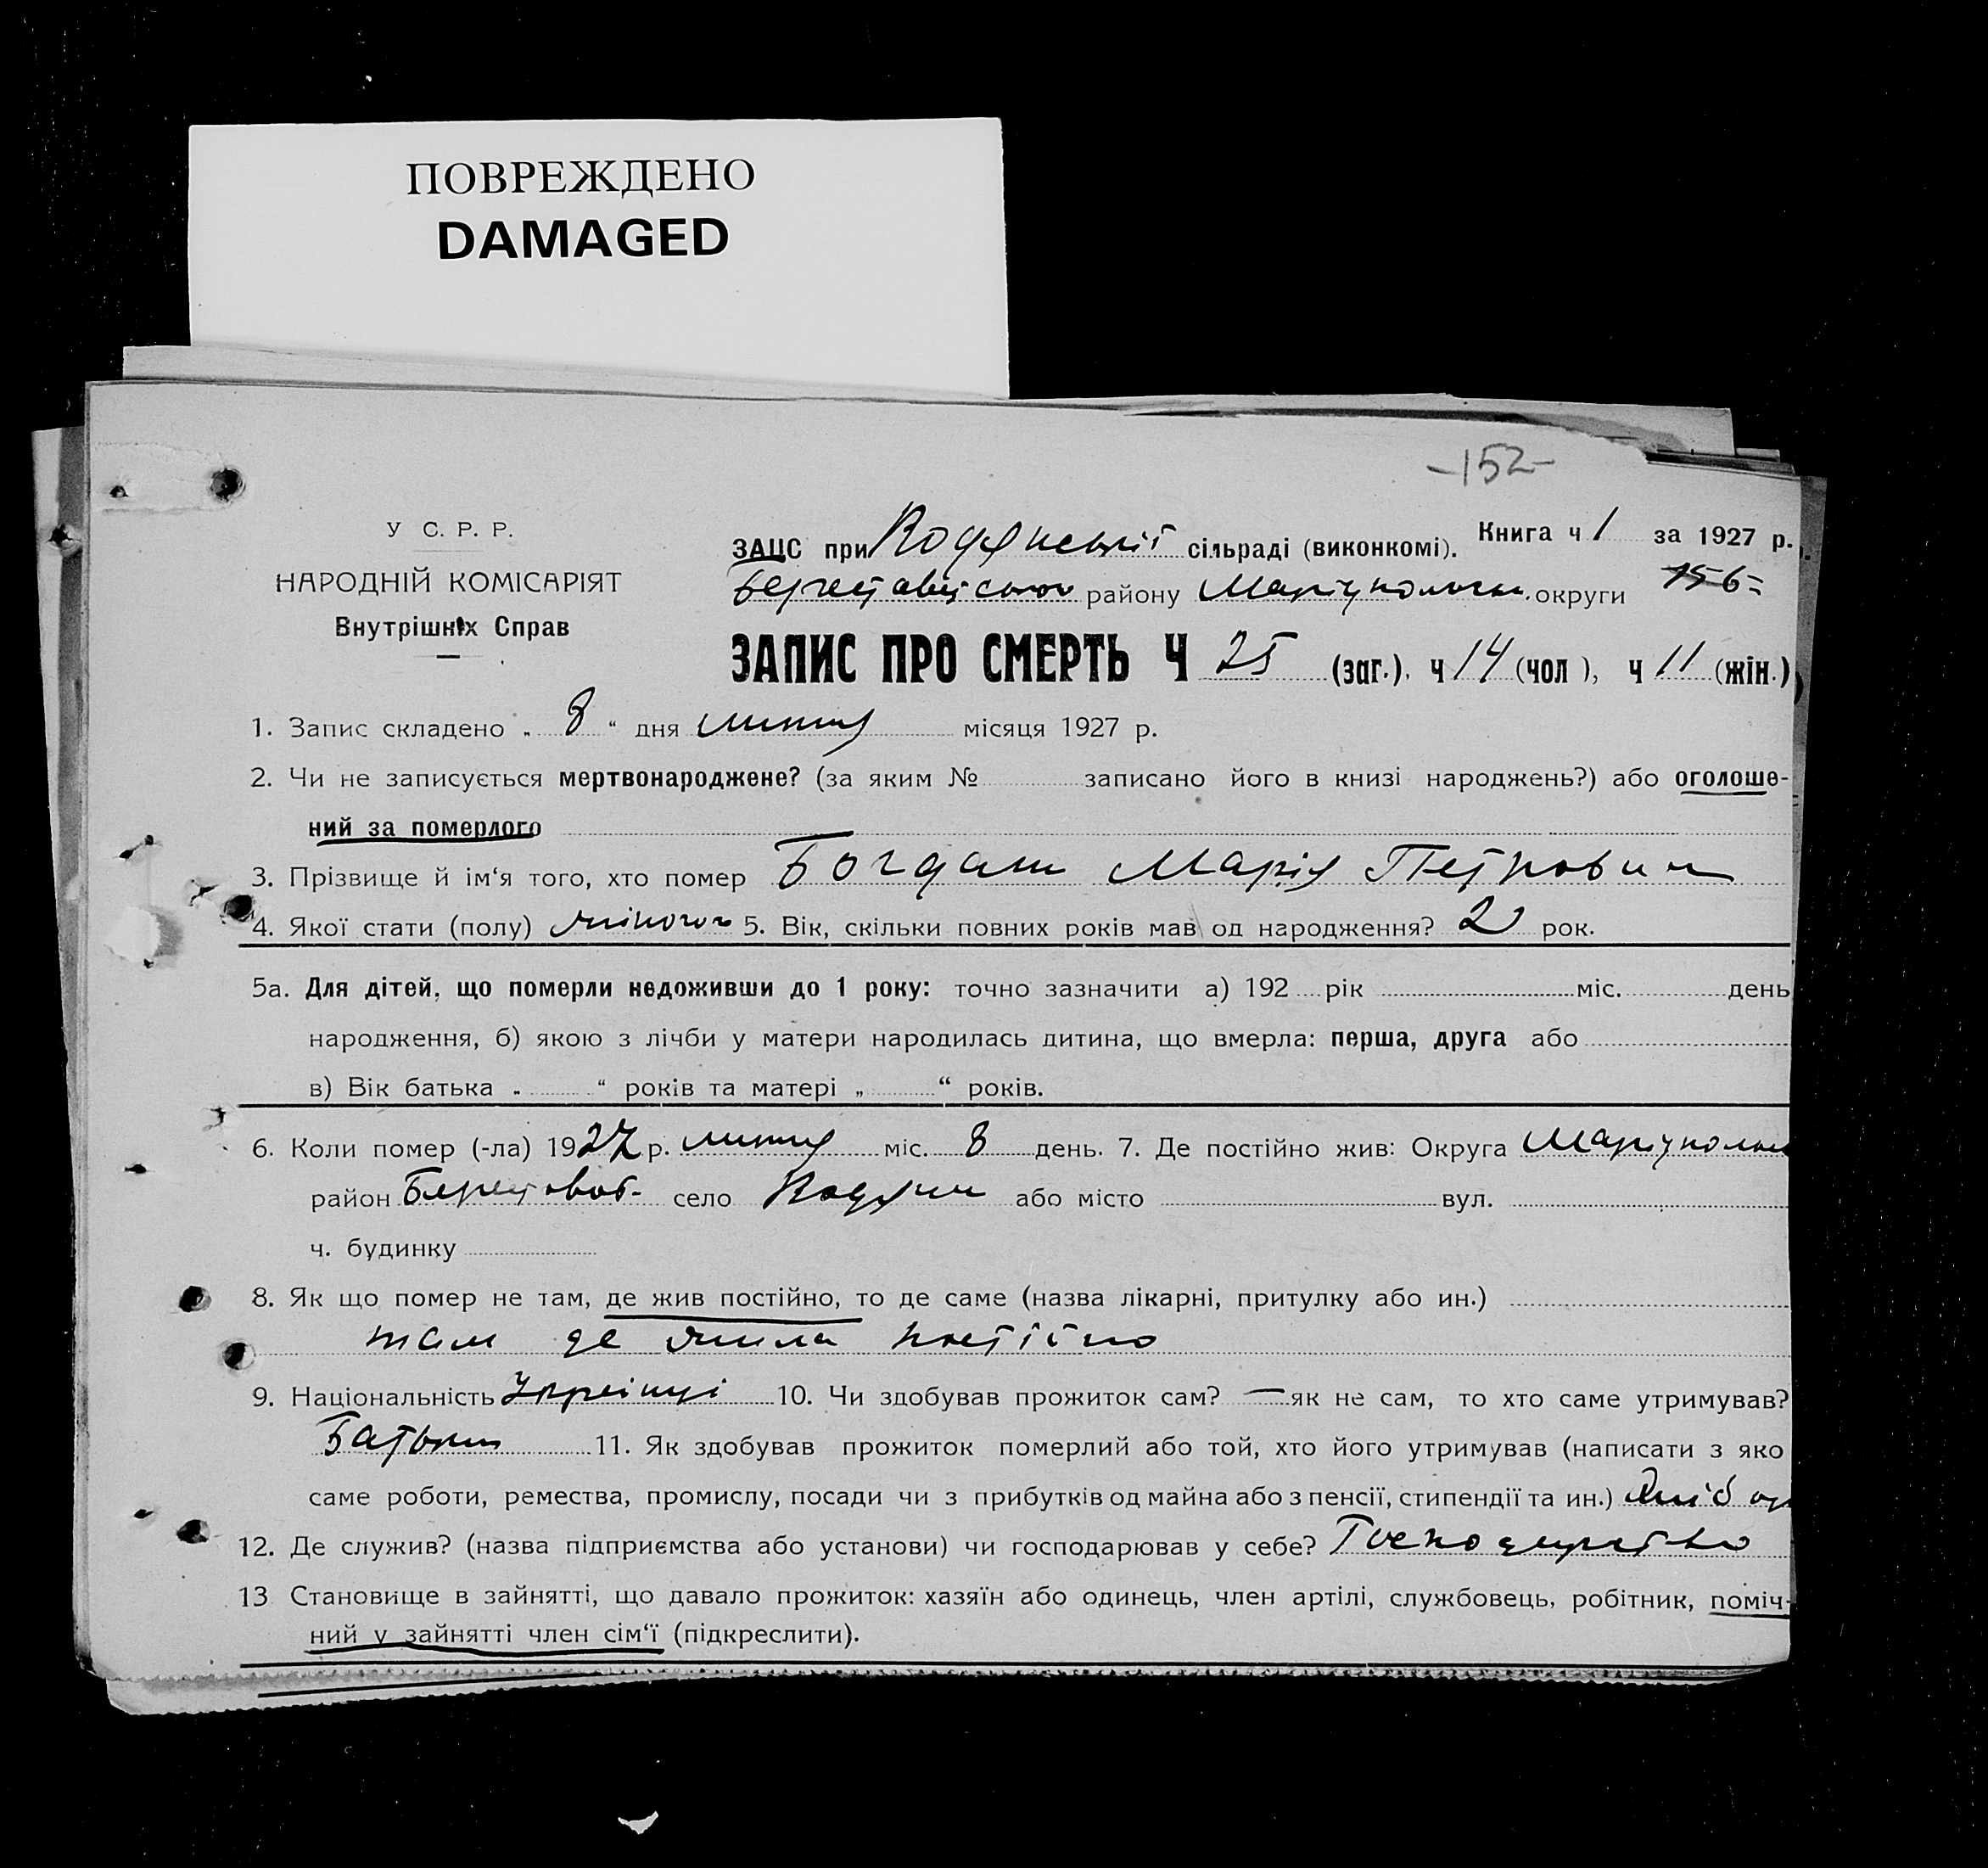 ПОВРЕЖДЕНО
DAMAGED
-152-
У С. Р. Р.
НАРОДНІЙ КОМІСАРІЯТ
Внутрішніх Справ
ЗАЦС при Водянській сільраді (виконкомі). Книга ч 1 за 1927 р.
району округи 156-
ЗАПИС ПРО СМЕРТЬ Ч 25 (заг.), ч 14 (чол ), ч 11 (жін.)
1. Запис складено „ 8 “ дня лютня місяця 1927 р.
2. Чи не записується мертвонароджене? (за яким № записано його в книзі народжень?) або оголоше-
ний за померлого
3. Прізвище й ім‘я того, хто помер Богдан Марія Петровна
4. Якої стати (полу) жіночої 5. Вік, скільки повних років мав од народження? 2 рок.
5а. Для дітей, що померли недоживши до 1 року: точно зазначити а) 192 рік міс. день
народження, б) якою з лічби у матери народилась дитина, що вмерла: перша, друга або
в) Вік батька „ “ років та матері „ “ років.
6. Коли помер (-ла) 1927 р. лютня міс. 8 день. 7. Де постійно жив: Округа Маріупольс
район Берестов. село або місто вул.
ч. будинку
8. Як що помер не там, де жив постійно, то де саме (назва лікарні, притулку або ин.)
там де жила постійно
9. Національність Українці 10. Чи здобував прожиток сам? — як не сам, то хто саме утримував?
Батьки 11. Як здобував прожиток померлий або той, хто його утримував (написати з яко
саме роботи, ремества, промислу, посади чи з прибутків од майна або з пенсії, стипендії та ин.)
12. Де служив? (назва підприємства або установи) чи господарював у себе? Господарство
13 Становище в зайнятті, що давало прожиток: хазяїн або одинець, член артілі, службовець, робітник, поміч-
ний у зайнятті член сім‘ї (підкреслити).